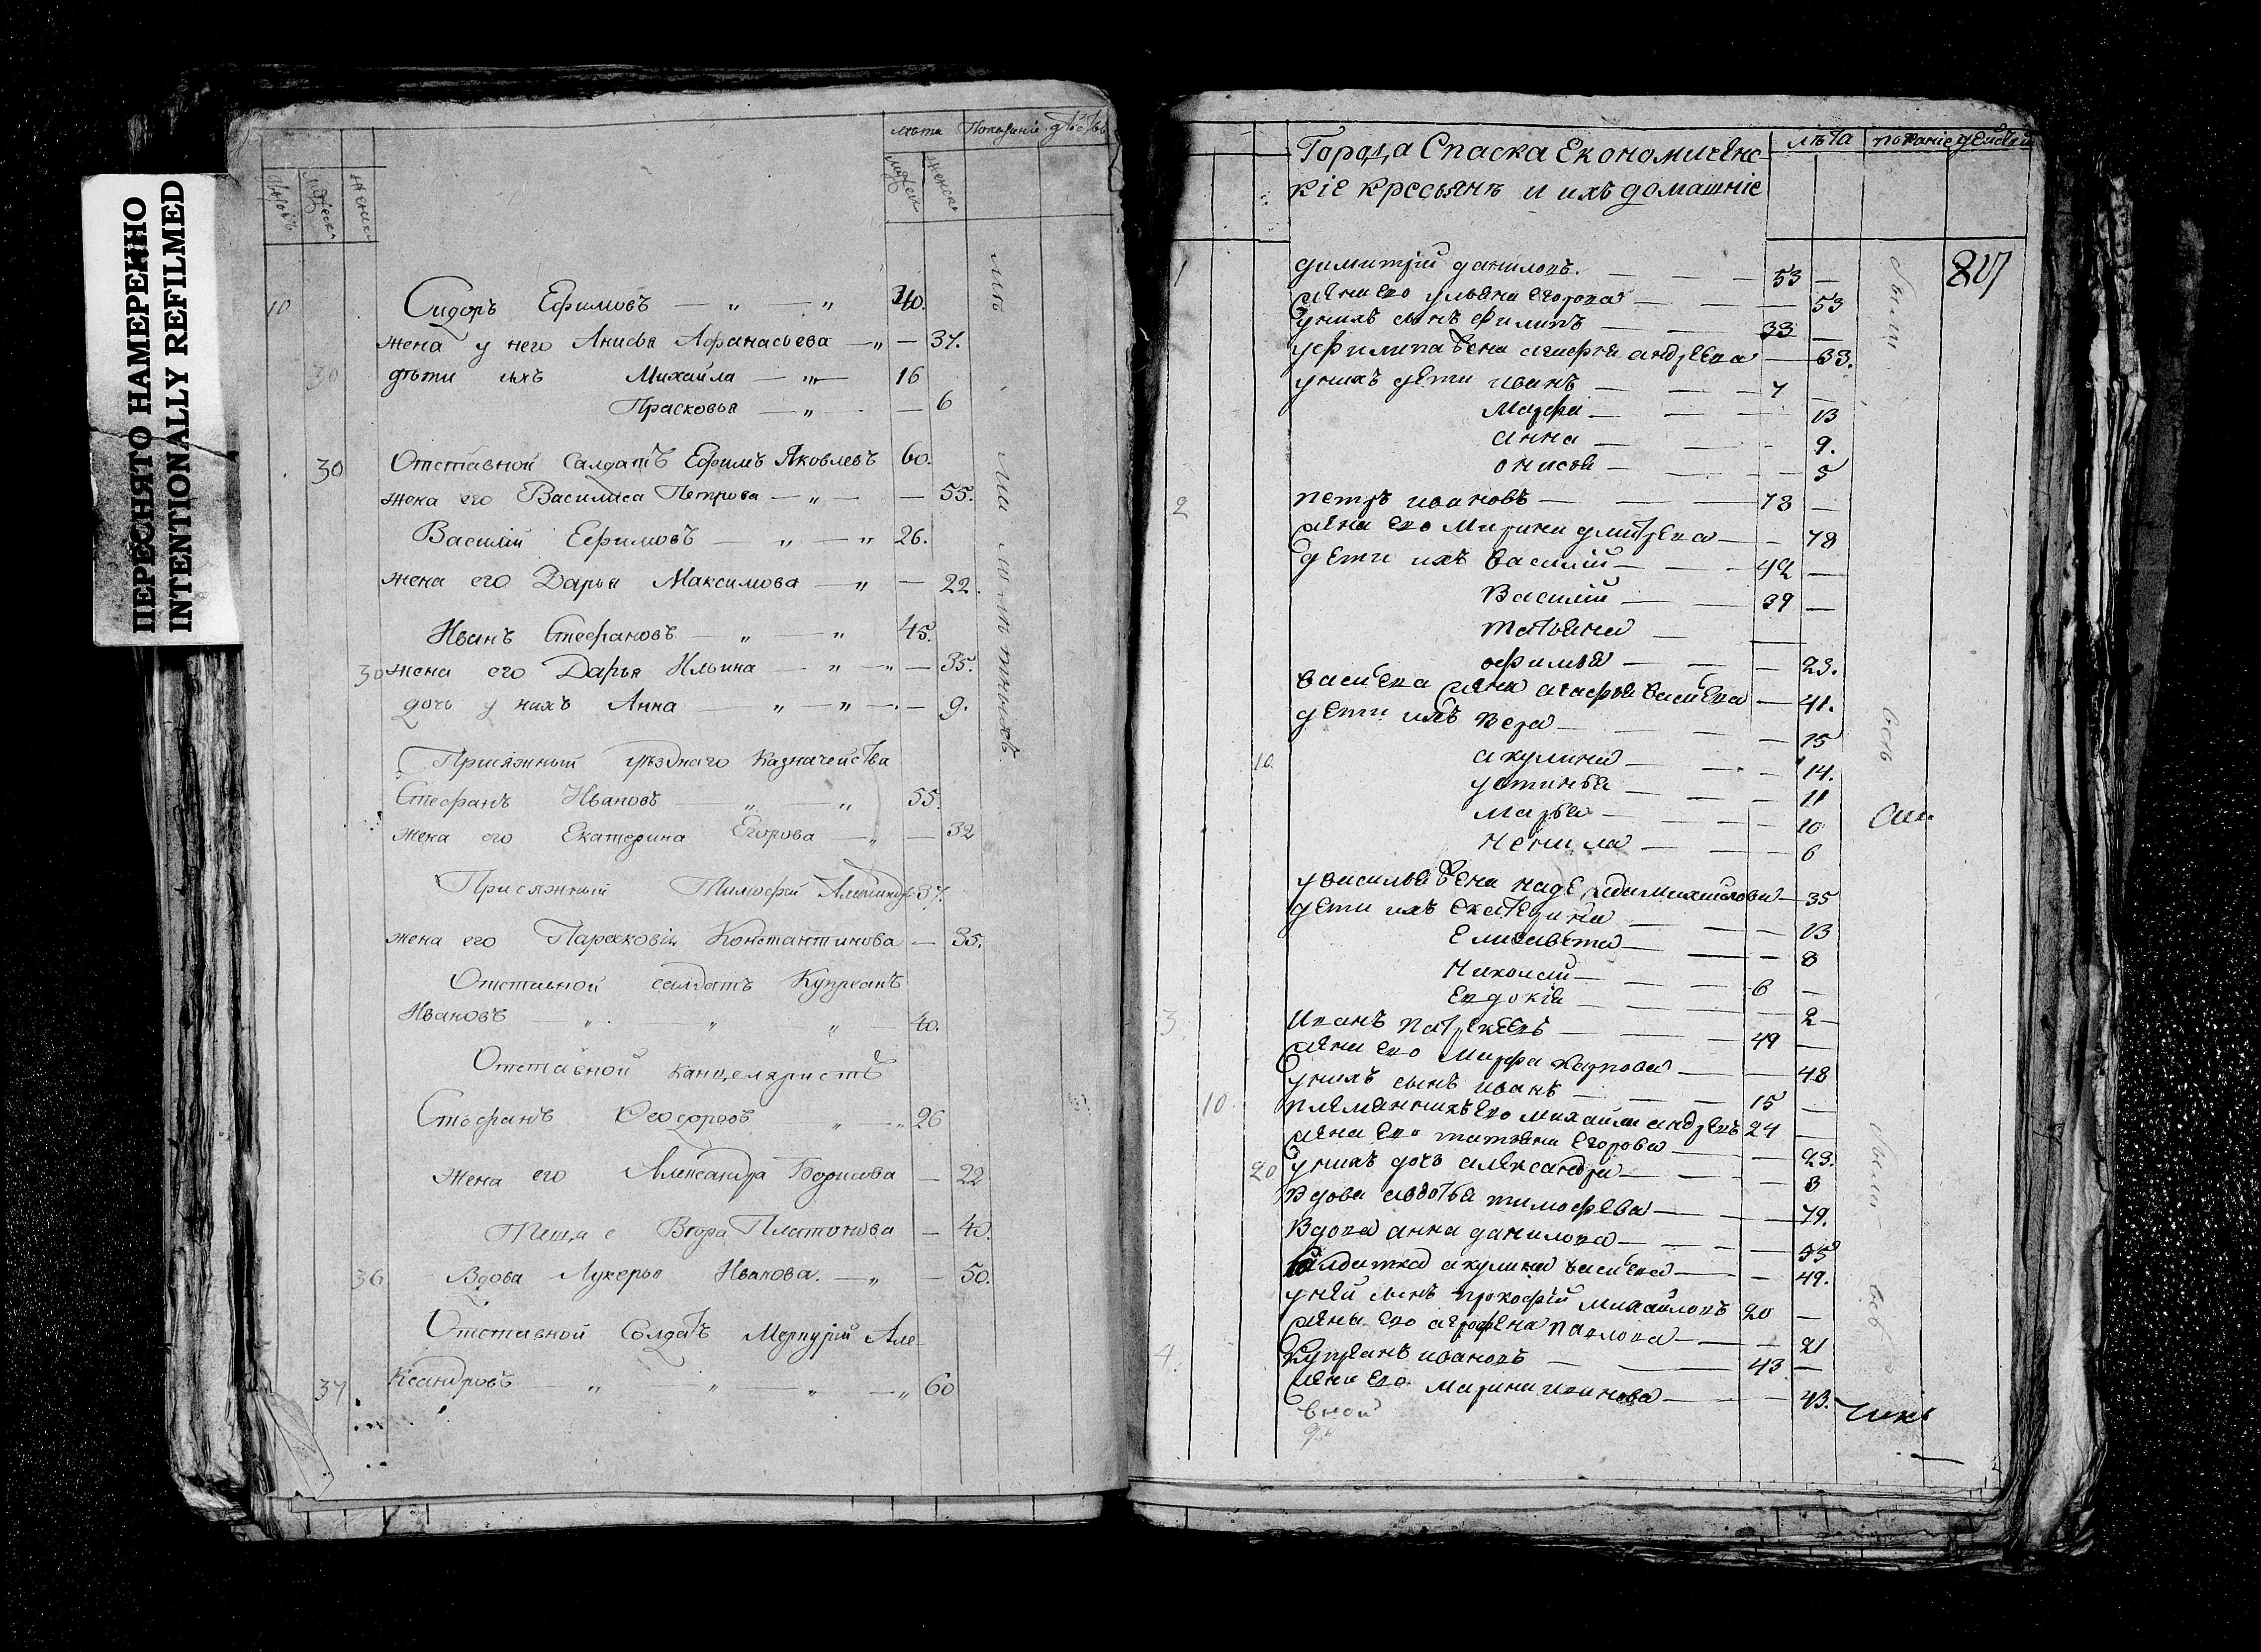 ПЕРЕСНЯТО НАМЕРЕННО
INTENTIONALLY REFILMED
лѣта Показаніе
10 Сидоръ Ефимовъ — „ — „ 40.
жена у него Анисья Афанасьева — „ — 37.
30 дѣти ихъ Михайла — „ — 16
Прасковья — „ — 6
30 Отставной салдатъ Ефимъ Яковлевъ 60.
жена его Василиса Петрова — „ — 55.
Василій Ефимовъ — „ — „ 26.
жена его Дарья Максимова — „ — 22.
Иванъ Стефановъ — „ — „ 45.
30 жена его Дарья Ильина — „ — „ — 35.
дочь у нихъ Анна — „ — „ — 9.
Присяжный уѣзднаго Казначейства
Стефанъ Ивановъ — „ — „ 55.
жена его Екатерина Егорова — „ — 32
Присяжный Тимофей 37.
жена его Парасковія Константинова — 35.
Отставной салдатъ Купреанъ
Ивановъ — „ — „ — „ — 40.
Отставной канцеляристъ
Стефанъ Феодоровъ „ — „ 26
жена его Александра Борисова — 22
Теща Платонова — 40.
36 Вдова Лукерья Иванова. — „ — 50.
Отставной Солдатъ Меркурій Але-
37 ксандровъ — „ — „ — „ — „ 60
Города Спаска Економиченс-
кіе кресьянъ и ихъ домашніе
лѣта
807
1 димитрій даниловъ. — — — 53 —
жена ево ульяна егорова — — — 53
у нихъ сынъ филипъ — — 33 —
у филипа жена агафья андрѣева — 33.
у нихъ дети иванъ — — — 7 —
Марфа — — — 13
анна — — — 9.
онисья — — — 5
2 петръ ивановъ — — — 78 —
жена ево Марина дмитрева — — 78
дети ихъ василій — — — 42 —
Василій — — 39 —
татьяна — —
офимья — — — 23.
жена агафья — 41.
дети ихъ вера — — — — 15
10 акулина — — — 14.
устинья — — — 11
марья — — — 10
Ненила — — — 6
— 35
дети ихъ екатерина — — — 13
Елизавета — — — 8
Николай — — — 6 —
Евдокія — — — 2 —
3 Иванъ — — — 49 —
жена ево марфа карпова — — 48
у нихъ сынъ иванъ — — — 15 —
10 племянникъ ево михайла андревъ 24 —
жена ево татьяна егорова — — 23.
20 у нихъ дочь александра — — — 3
вдова авдотья тимофева — — — 79.
Вдова анна данилова — — — 55
салдатка акулина — — 49.
у ней сынъ прокофій михайловъ 20 —
жена ево агрофена павлова — — 21
4. купреанъ ивановъ — — 43 —
жена ево марина иванова — — 43.